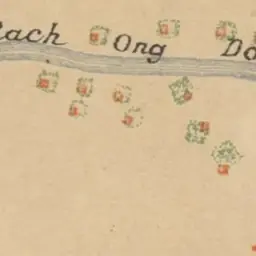 Rach Ong Do